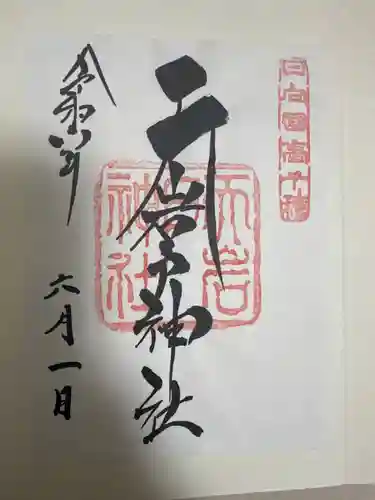 日向国高千穂
天岩戸神社
天岩戸神社
令和八年
六月一日